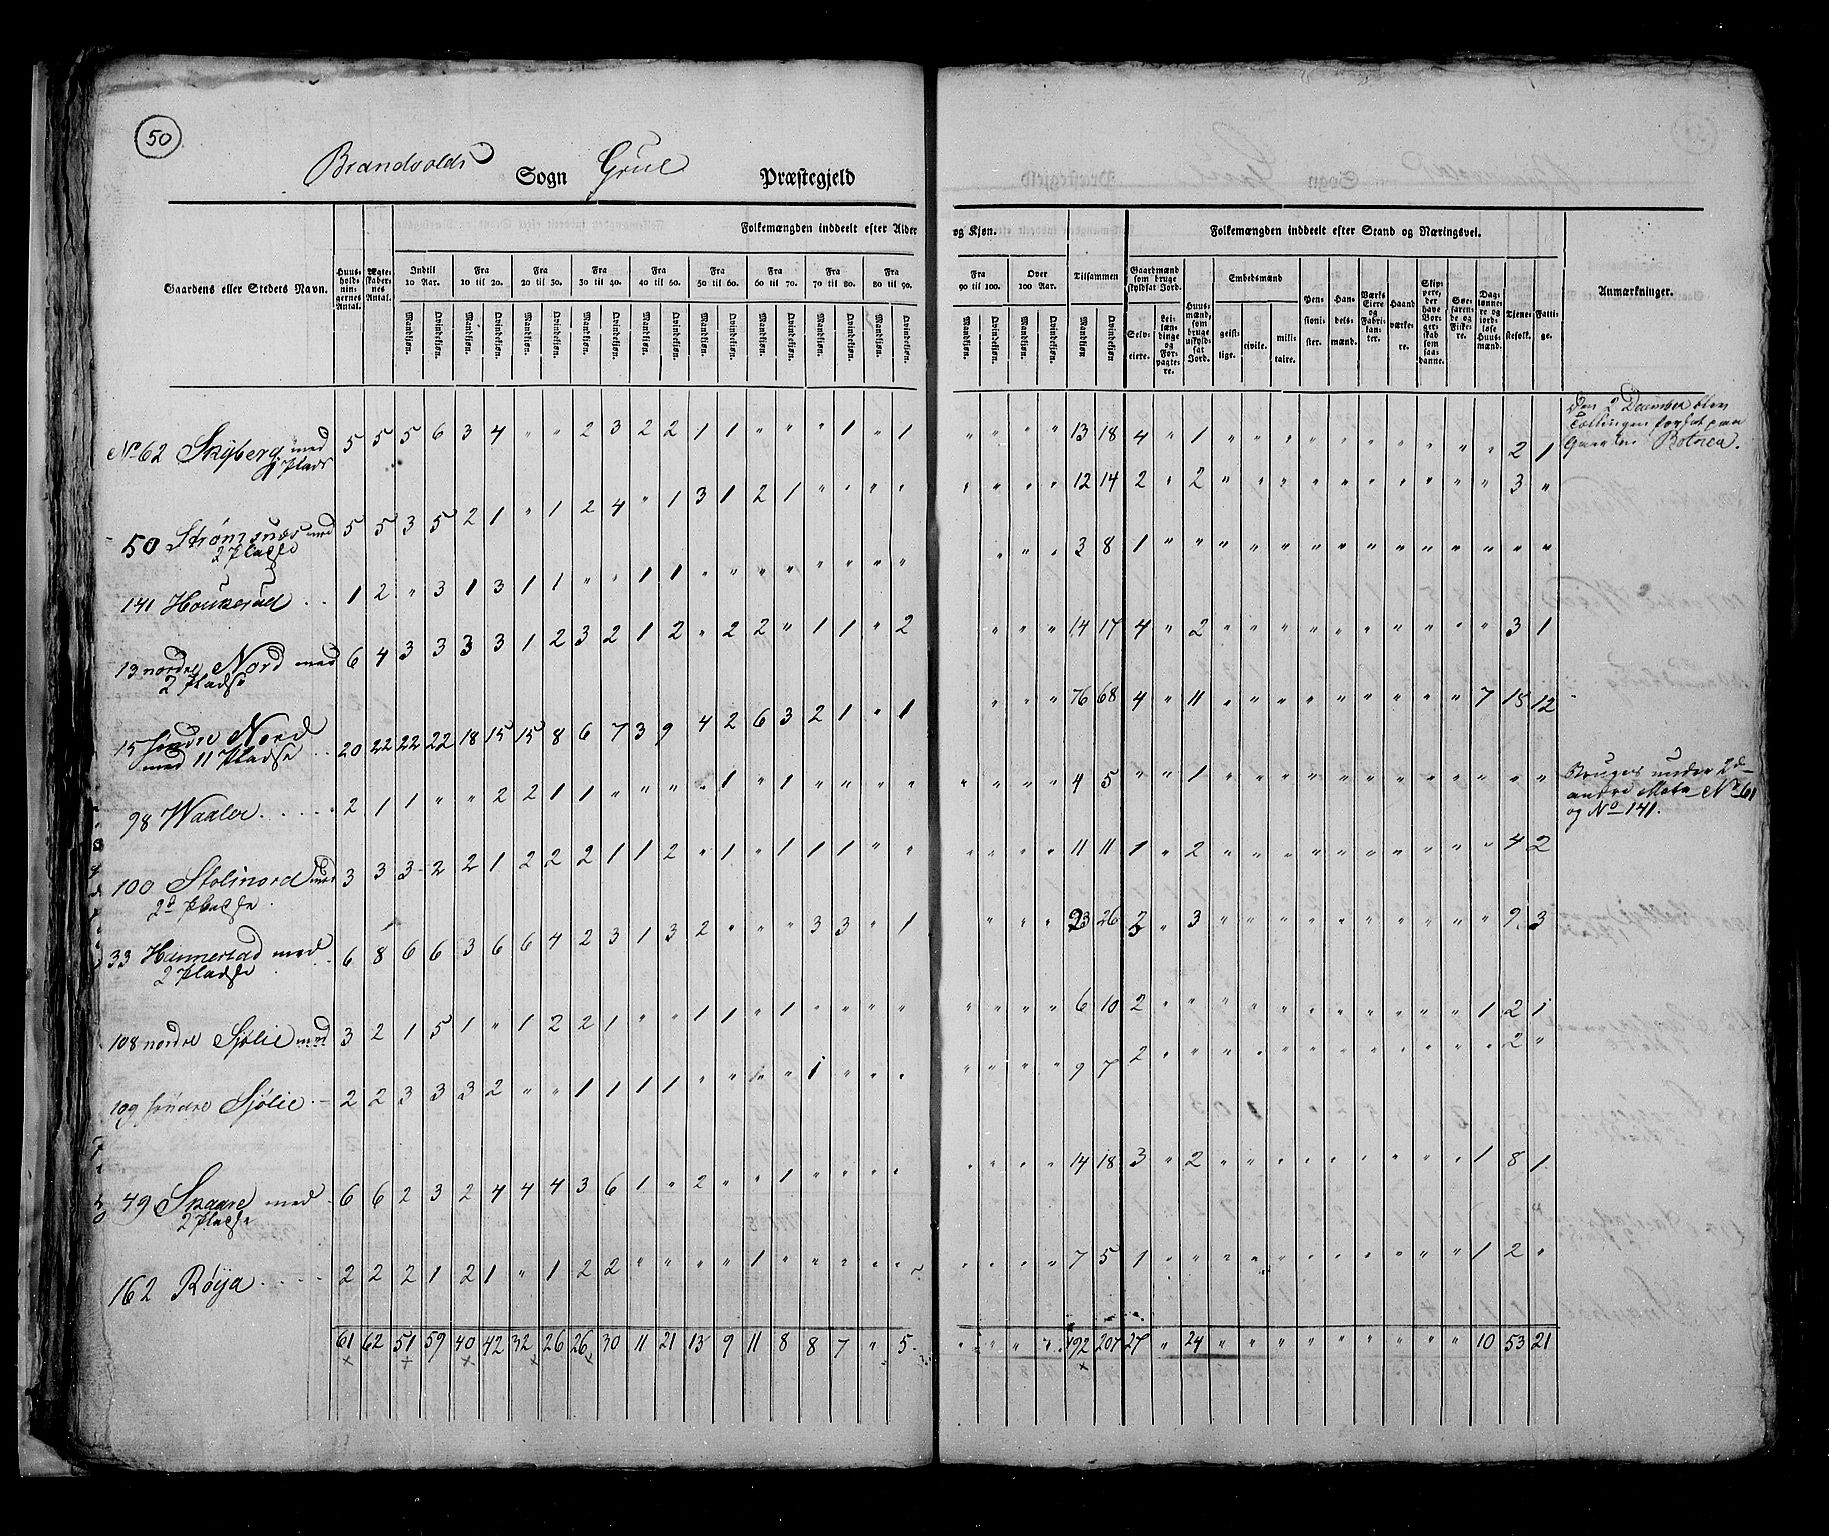 50
Brandvolds Sogn Grue Præstegjeld
Folkemængden inddeelt efter Alder og Kjøn.
Folkemængden inddeelt efter Stand og Næringsvei.
Gaardens eller Stedets Navn.
Huus- holdnin- gernes Antal.
Ægte- skaber- nes Antal.
Indtil 10 Aar.
Fra 10 til 20.
Fra 20 til 30.
Fra 30 til 40.
Fra 40 til 50.
Fra 50 til 60.
Fra 60 til 70.
Fra 70 til 80.
Fra 80 til 90.
Fra 90 til 100.
Over 100 Aar.
Tilsammen
Mandkjøn. Qvindekjøn.
Gaardmænd som bruge skyldsat Jord.
Selv- eiere.
Lei- læn- dinge og For- pagte- re.
Huus- mænd, som bruge uskyld- sat Jord.
Embedsmænd
geist- lige.
civile.
mili- taire.
Pen- sioni- ster.
Han- dels- mænd.
Værks Eiere og Fabri- kan- ter.
Haand værke- re.
Skip- pere, der have Bor- ger- skab som saa- danne.
Søe- farende og Fiske- re.
Dag- lønne- re og jord- løse Huus- mænd.
Tjene- stefolk.
Fatti- ge.
Anmærkninger.
No 62 Skyberg med 1 Plads 5 5 5 6 3 4 " " 2 3 2 2 1 1 " " " 1 " 1 " " " " 13 18 4 " 1 " " " " " " " " " " 2 1
Den 2 December blev Tællingen forsat paa Gaarden Botnea.
50 Strømsnæs med 2 Pladse 5 5 3 5 2 1 " 1 2 4 " 1 3 1 2 1 " " " " " " " " 12 14 2 " 2 " " " " " " " " " " 3 "
141 Houkerud . . 1 2 " 3 1 3 1 1 " " 1 1 " " " " " " " " " " " 3 8 1 " " " " " " " " " " " " " "
13 nordre Nord med 2 Pladse 6 4 3 3 3 3 1 2 3 2 1 2 " 2 2 " 1 1 " 2 " " " 14 17 4 " 2 " " " " " " " " " " 3 1
15 søndre Nord med 11 Pladse . . 20 22 22 22 18 15 15 8 6 7 3 9 4 2 6 3 2 1 " 1 " " " 76 68 4 " 11 " " " " " " " " " 7 15 12
98 Waaler . . . . . 2 1 1 " " 2 2 1 1 " " " " 1 " 1 " " " " " " " " 4 5 " " 1 " " " " " " " " " " " "
Bruges under 2de andre Matr No 61 og No 141.
100 Stolinord med 2d Pladse . 3 3 3 2 2 1 2 2 2 1 1 2 " 1 " 1 1 1 " " " " " " 11 11 1 " 2 " " " " " " " " " " 4 2
33 Hammerstad med 2 Pladse . . 6 8 6 6 3 6 6 4 2 3 1 3 2 " " " 3 3 " 1 " " " 23 26 3 " 3 " " " " " " " " " " 9 3
108 nordre Sjölie med 3 2 1 5 1 " 1 2 2 1 " " 1 1 " 1 " " " " " " " " 6 10 2 " " " " " " " " " " " 1 2 1
109 søndre Sjölie . - 2 2 3 3 3 2 " " 1 1 1 1 " " " " 1 " " " " " " " 9 7 2 " " " " " " " " " " " " 2 "
49 Skaare med 2 Pladse 6 6 2 3 2 4 4 4 3 6 1 " 2 " " 1 " " " " " " " " 14 18 3 " 2 " " " " " " " " " 1 8 1
162 Røya . . . . . 2 2 2 1 2 1 " 1 2 2 " " " " 1 " " " " " " " " " 7 5 1 " " " " " " " " " " " 1 2 "
61 62 51 59 40 42 32 26 26 30 11 21 13 9 11 8 8 7 " 5 " " " " 192 207 27 " 24 " " " " " " " " " 10 53 21